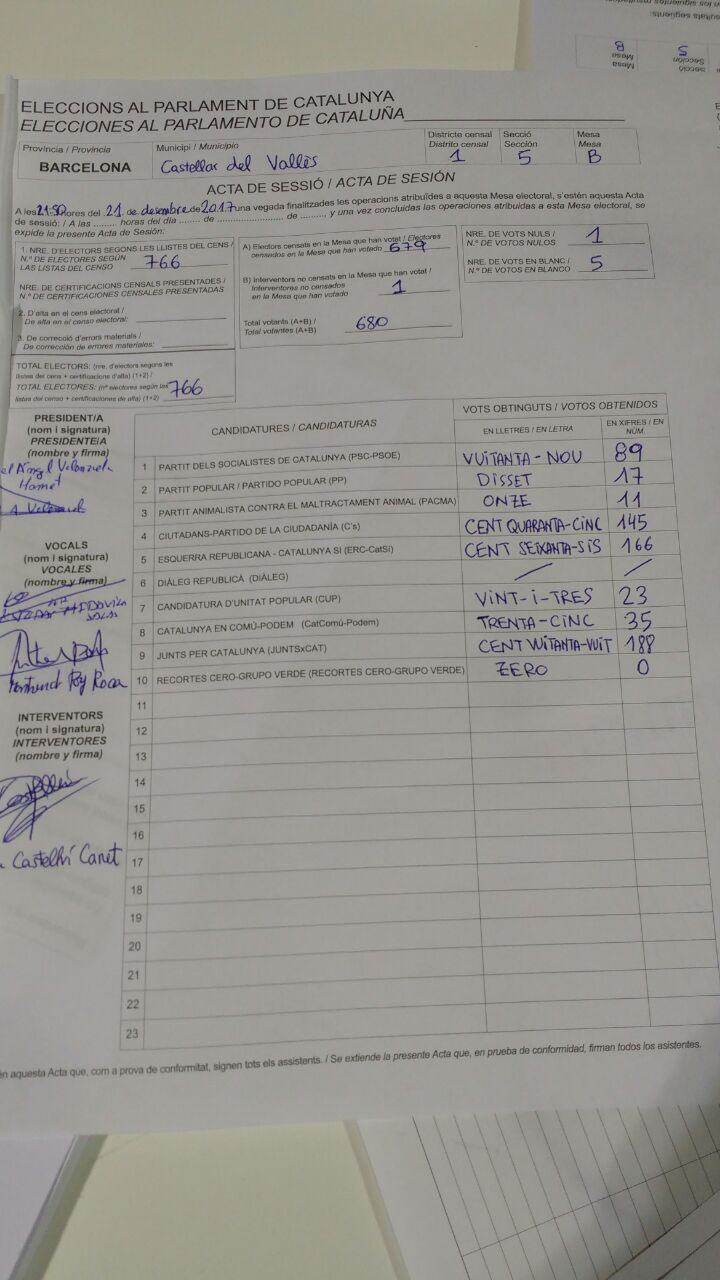 ELECCIONS AL PARLAMENT DE CATALUNYA
ELECCIONES AL PARLAMENTO DE CATALUÑA
Província / Provincia
BARCELONA
Municipi / Municipio
Castellar del Vallès
Districte censal
Distrito censal
1
Secció
Sección
5
Mesa
Mesa
B
ACTA DE SESSIÓ / ACTA DE SESIÓN
A les 21:50 hores del 21 de desembre de 2017 una vegada finalitzades les operacions atribuïdes a aquesta Mesa electoral, s'estén aquesta Acta
de sessió: / A las ........ horas del día ........ de ........................ de ........, y una vez concluidas las operaciones atribuidas a esta Mesa electoral, se
expide la presente Acta de Sesión:
1. NRE. D'ELECTORS SEGONS LES LLISTES DEL CENS /
N.º DE ELECTORES SEGÚN
LAS LISTAS DEL CENSO
766
NRE. DE CERTIFICACIONS CENSALS PRESENTADES /
N.º DE CERTIFICACIONES CENSALES PRESENTADAS
2. D'alta en el cens electoral /
De alta en el censo electoral:
3. De correcció d'errors materials /
De corrección de errores materiales:
TOTAL ELECTORS: (nre. d'electors segons les
llistes del cens + certificacions d'alta) (1+2) /
TOTAL ELECTORES: (nº electores según las
listas del censo + certificaciones de alta) (1+2)
766
A) Electors censats en la Mesa que han votat / Electores
censados en la Mesa que han votado 679
B) Interventors no censats en la Mesa que han votat /
Interventores no censados
en la Mesa que han votado
1
Total votants (A+B) /
Total votantes (A+B)
680
NRE. DE VOTS NULS /
N.º DE VOTOS NULOS
1
NRE. DE VOTS EN BLANC /
N.º DE VOTOS EN BLANCO
5
CANDIDATURES / CANDIDATURAS
VOTS OBTINGUTS / VOTOS OBTENIDOS
EN LLETRES / EN LETRA
EN XIFRES / EN NÚM.
1 PARTIT DELS SOCIALISTES DE CATALUNYA (PSC-PSOE) VUITANTA-NOU 89
2 PARTIT POPULAR / PARTIDO POPULAR (PP) DISSET 17
3 PARTIT ANIMALISTA CONTRA EL MALTRACTAMENT ANIMAL (PACMA) ONZE 11
4 CIUTADANS-PARTIDO DE LA CIUDADANÍA (C's) CENT QUARANTA-CINC 145
5 ESQUERRA REPUBLICANA - CATALUNYA SI (ERC-CatSí) CENT SEIXANTA-SIS 166
6 DIÀLEG REPUBLICÀ (DIÀLEG)
7 CANDIDATURA D'UNITAT POPULAR (CUP) VINT-I-TRES 23
8 CATALUNYA EN COMÚ-PODEM (CatComú-Podem) TRENTA-CINC 35
9 JUNTS PER CATALUNYA (JUNTSxCAT) CENT VUITANTA-VUIT 188
10 RECORTES CERO-GRUPO VERDE (RECORTES CERO-GRUPO VERDE) ZERO 0
11
12
13
14
15
16
17
18
19
20
21
22
23
PRESIDENT/A
(nom i signatura)
PRESIDENTE/A
(nombre y firma)
VOCALS
(nom i signatura)
VOCALES
(nombre y firma)
Roca
INTERVENTORS
(nom i signatura)
INTERVENTORES
(nombre y firma)
Castellví Canet
en aquesta Acta que, com a prova de conformitat, signen tots els assistents. / Se extiende la presente Acta que, en prueba de conformidad, firman todos los asistentes.